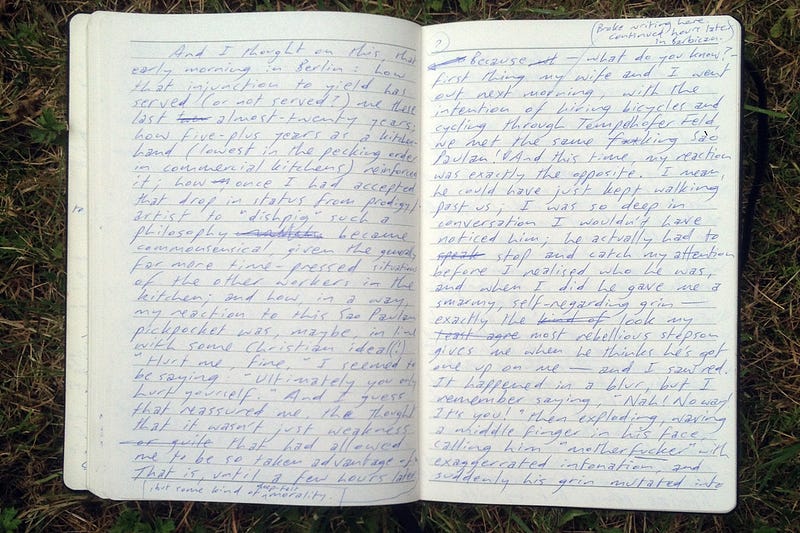 And I thought on this, that
early morning in Berlin: how
that injunction to yield has
served (or not served?) me these
last almost-twenty years;
how five-plus years as a kitchen-
hand (lowest in the pecking order
in commercial kitchens) reinforced
it; how once I had accepted
that drop in status from prodigy/
artist to "dishpig" such a
philosophy became
commonsensical given the
far more time-pressed situations
of the other workers in the
kitchen; and how, in a way,
my reaction to this Sao Paulan
pickpocket was, maybe, in line
with some Christian ideal(!)
"Hurt me, fine," I seemed to
be saying. "Ultimately you only
hurt yourself." And I guess
that reassured me, the thought
that it wasn't just weakness
or guile that had allowed
me to be so taken advantage of
That is, until a few hours later
(but some kind of morality.
to
2)
(Broke writing here,
continued hours later
in Barbican.)
Because – what do you know? –
first thing my wife and I went
out next morning, with the
intention of hiring bicycles and
cycling through Tempelhofer Feld
we met the same fucking Sao
Paulan! And this time, my reaction
was exactly the opposite. I mean,
he could have just kept walking
past us; I was so deep in
conversation I wouldn't have
noticed him; he actually had to
speak stop and catch my attention
before I realised who he was,
and when I did he gave me a
smarmy, self-regarding grin —
exactly the kind of look my
most rebellious stepson
gives me when he thinks he's got
one up on me — and I saw red.
It happened in a blur, but I
remember saying, "Nah! No way!
It's you!" then exploding, waving
a middle finger in his face,
calling him "motherfucker" with
exaggerated intonation, and
suddenly his grin mutated into